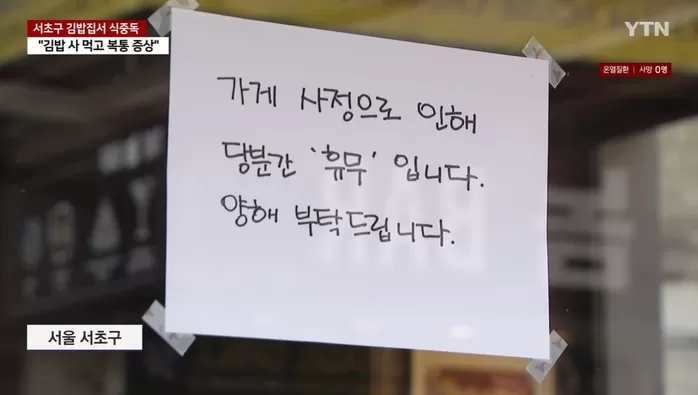 서초구 김밥집서 식중독
"김밥 사 먹고 복통 증상"
YTN
온열질환 사망 0명
가게 사정으로 인해
당분간 '휴무' 입니다.
양해 부탁드립니다.
서울 서초구